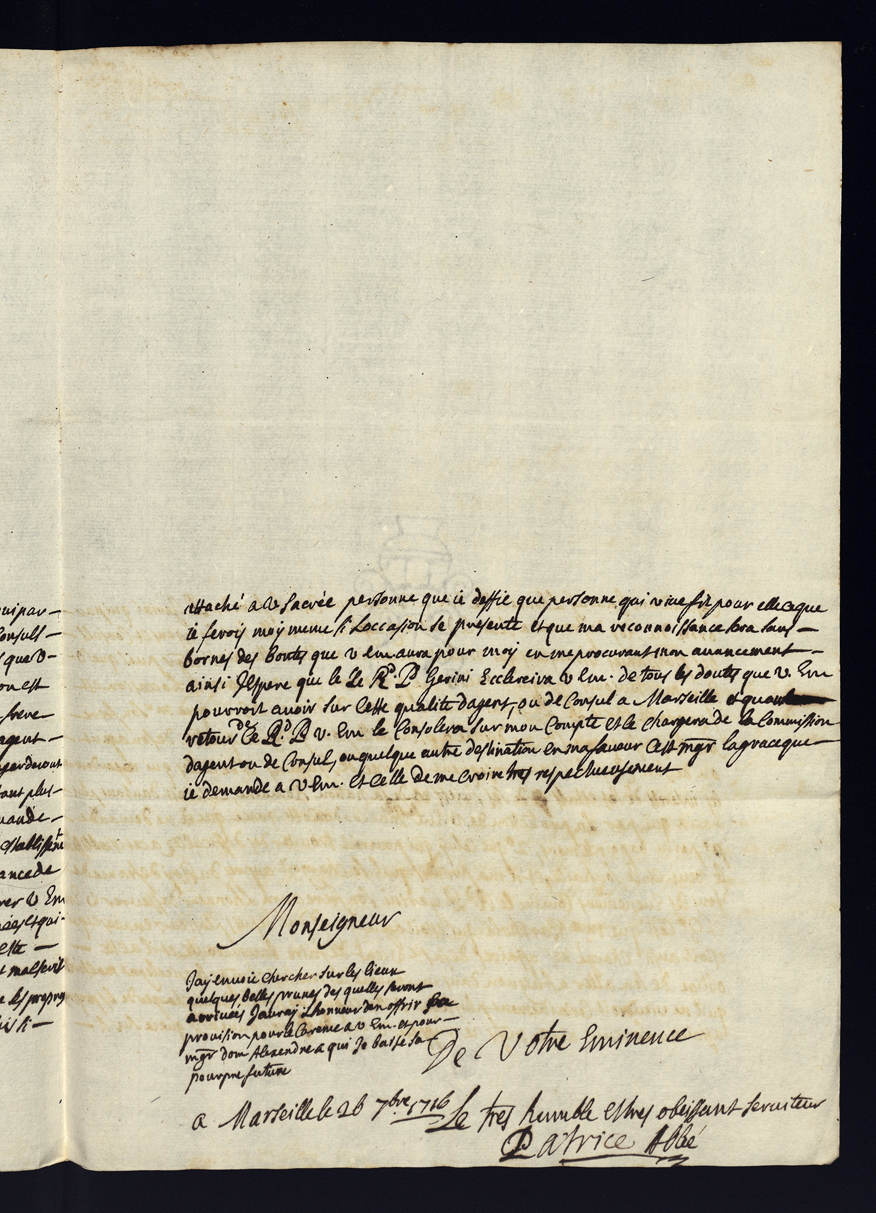 uipar—
Consuls—
que v—
on est
frere
agent—
garderont
tant plus—
mande—
Establissmt
ance de
rer v Em
et qui
Elle —
t mal servit
e les propos
attaché a v sacrée personne que ie deffie que personne qui vive fit pour elle ce que
ie ferois moy meme si loccasion se presente et que ma reconnoissance sera sans—
bornes des bontes que v Em aura pour moy en me procurant mon avancement—
ainsi Jespere que le Rd. P Gerini Ecclereira v Em. de tous les doutes que v. Em
pourroit avoir sur Cette qualite dagent, ou de Consul a Marseille et quau
retour de Ce Rd P v. Em le Consolera sur mon Compte et le chargera de la Commission
dagent ou de Consul, ou quelque autre destination en ma faveur Cest mgr la grace que—
ie demande a v Em. et Celle de me croire tres respectueusement
Monseigneur
Jay envoié chercher sur les lieux
quelques belles prunes des quelles seront
arrivées Jauray lhonneur dan offrir sa
provision pour le Careme a v Em. et pour—
mgr dom Alexendre a qui Je baise la
pourpre future
De Votre Eminence
a Marseille le 26 7bre 1716 Le tres humble et tres obeissant serviteur
Patrice Abbé